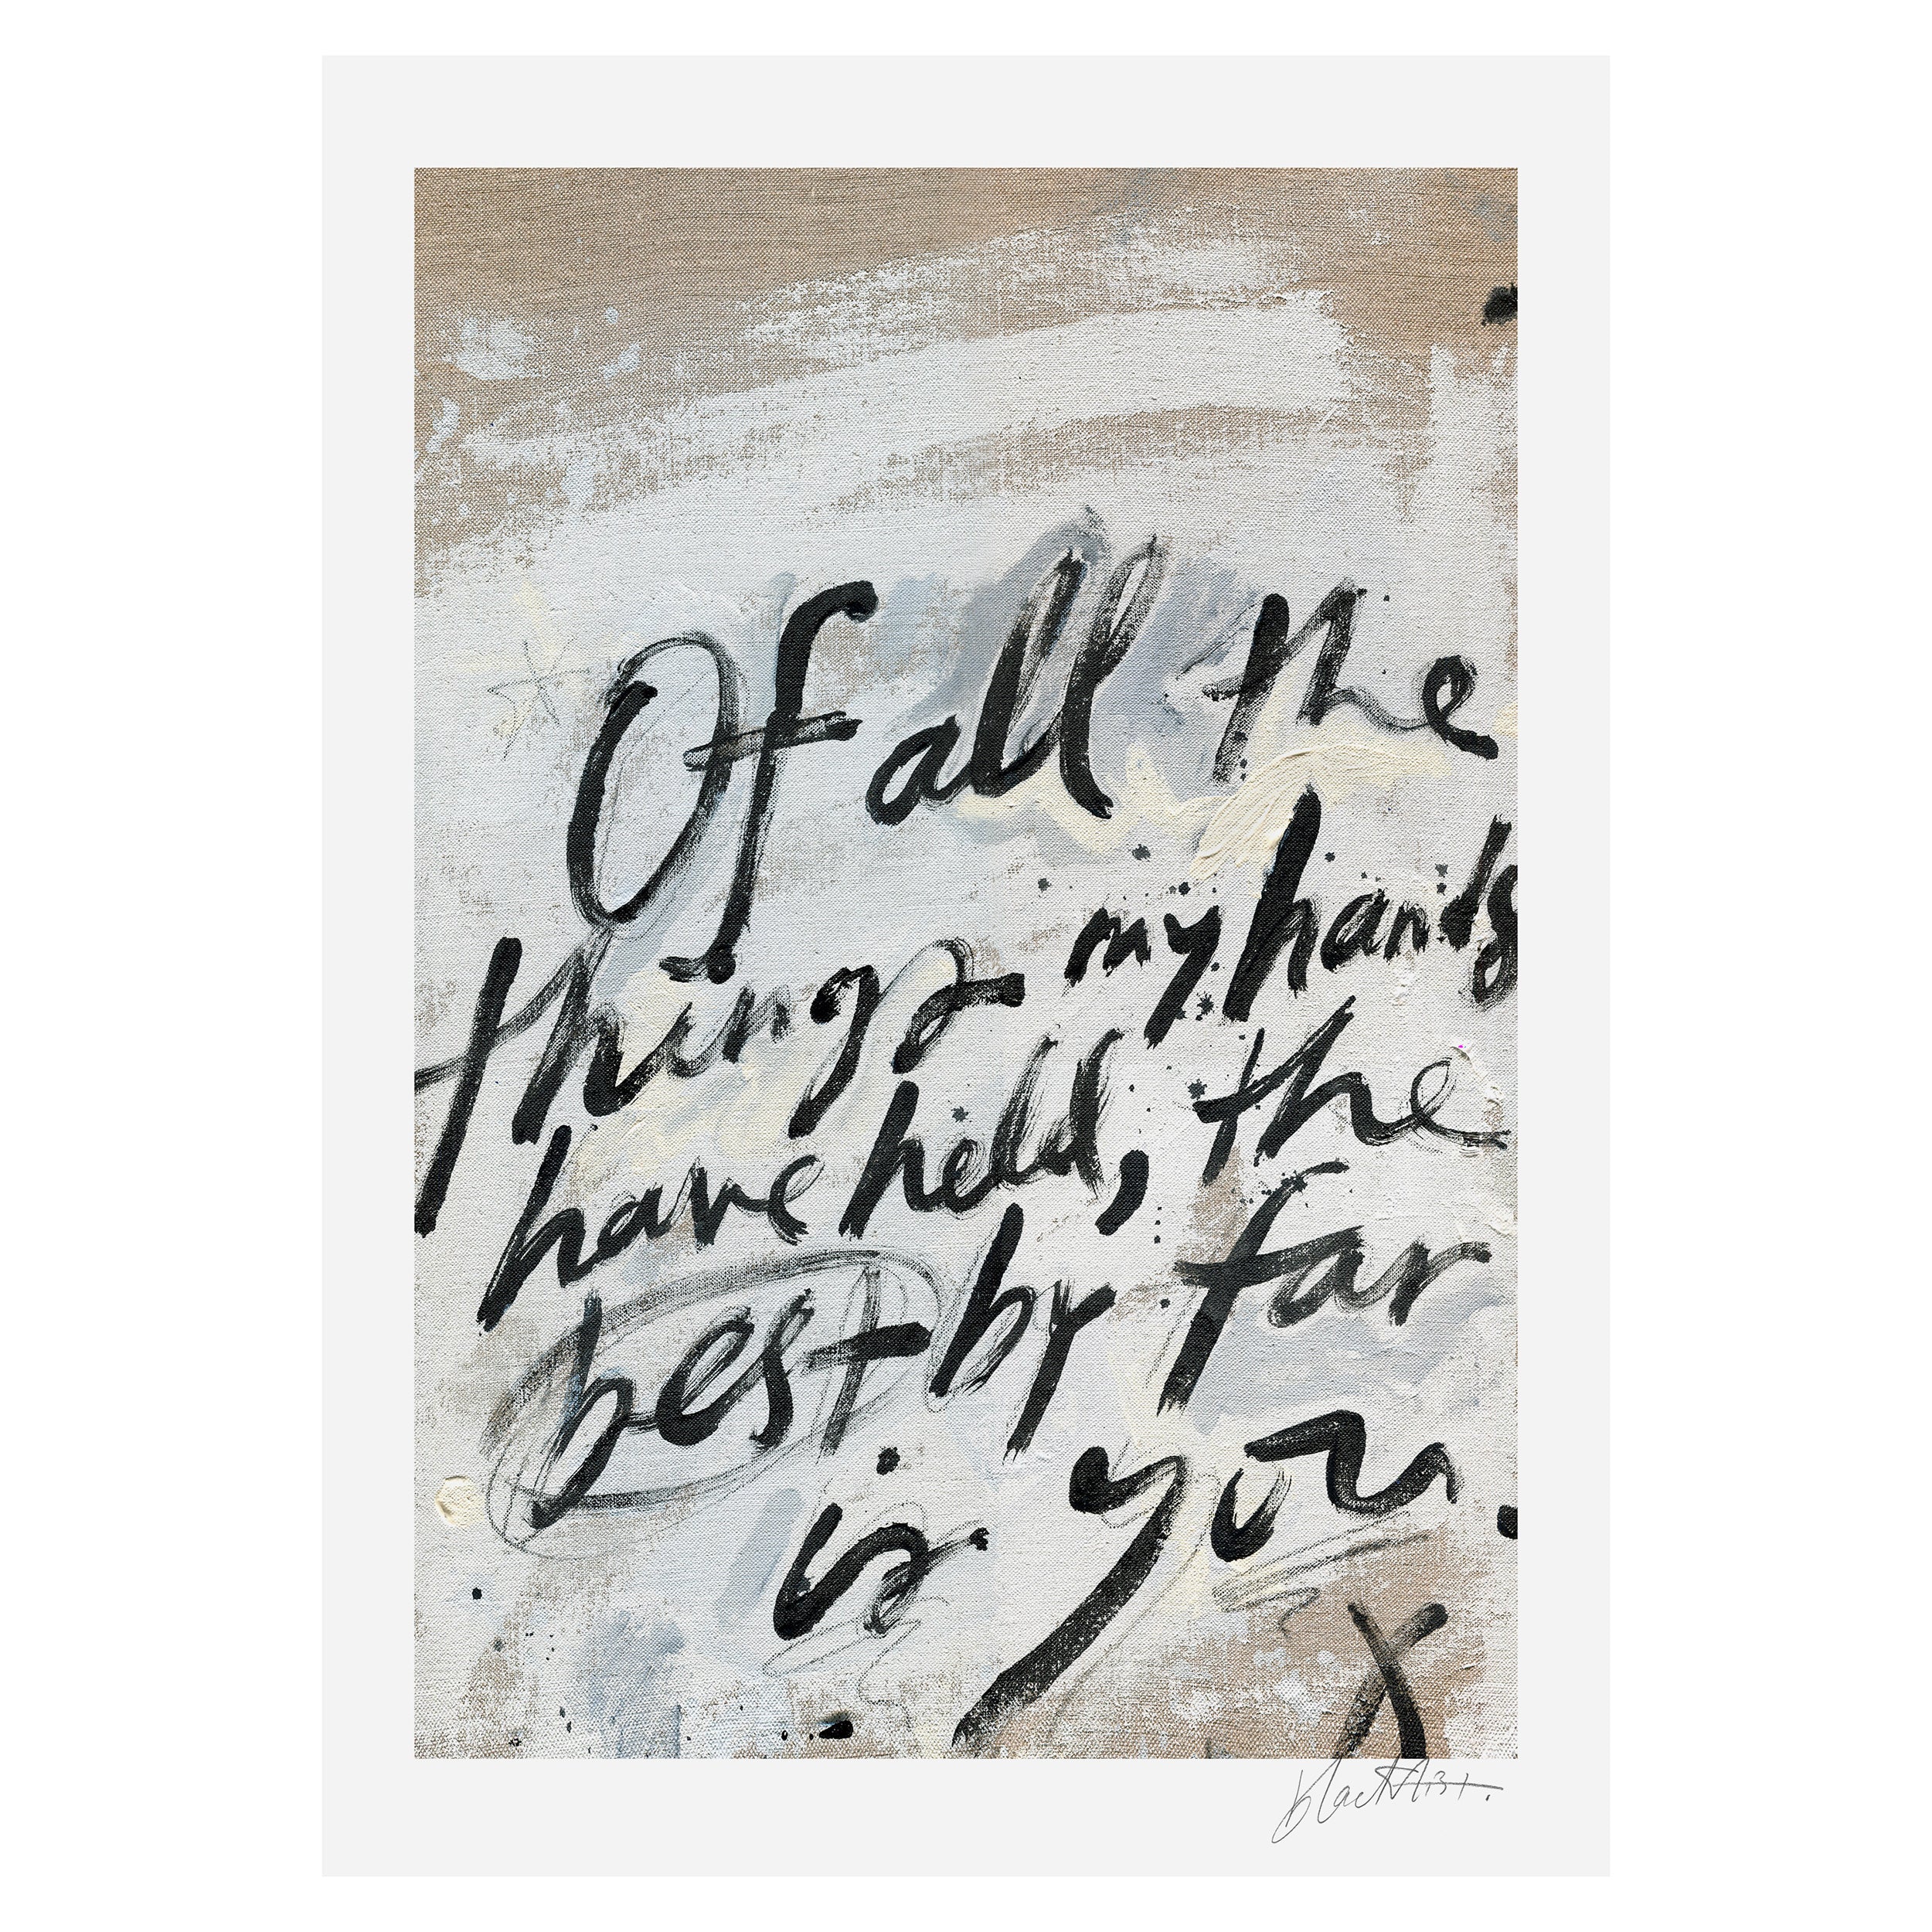 Of all the
things my hands
have held, the
best by far
is you.
x
blacklist.